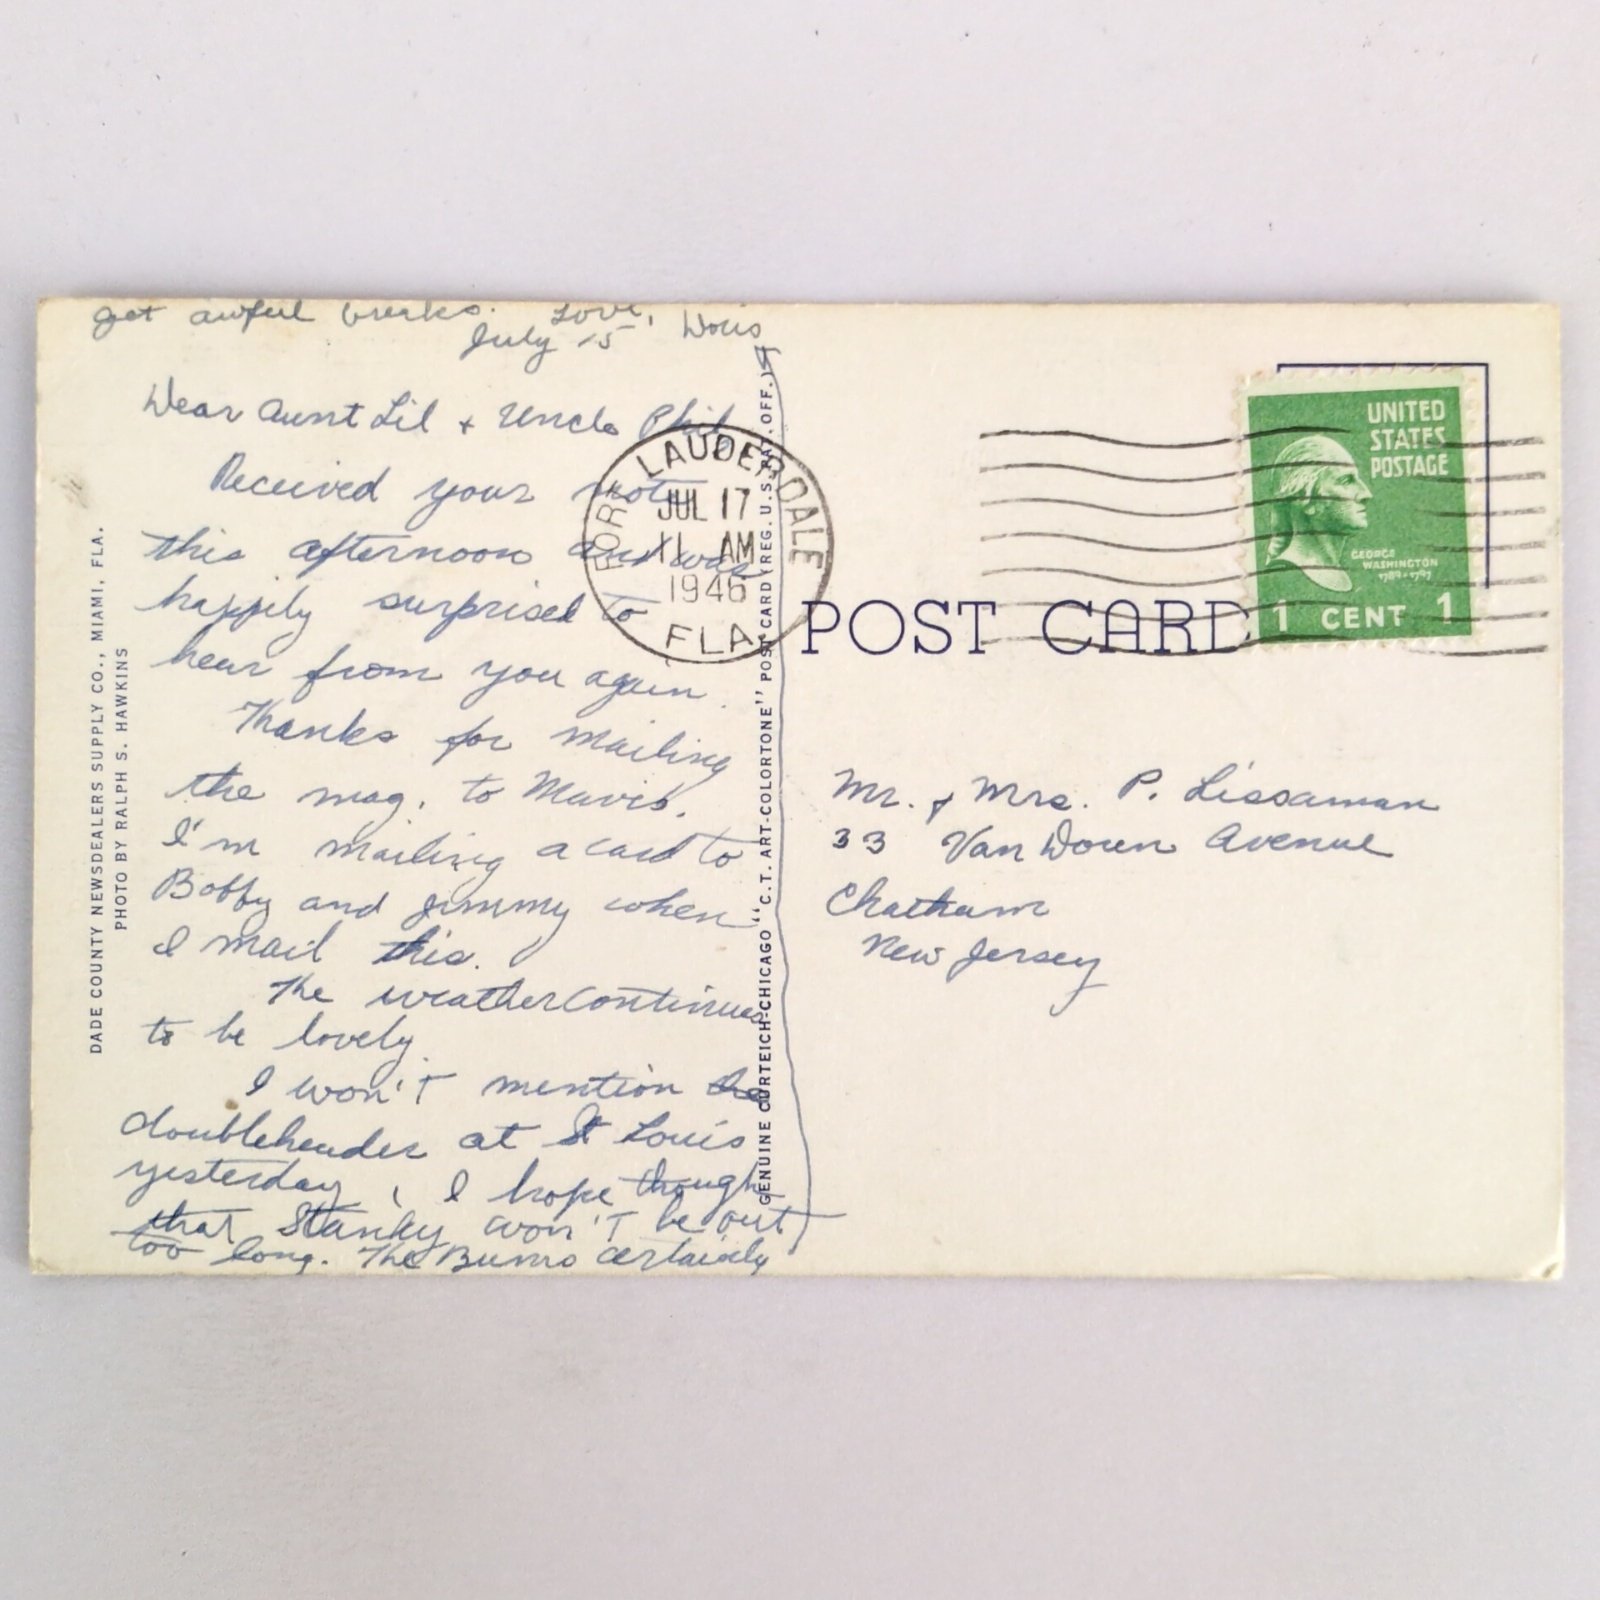 get awful breaks. Love, Doris
July 15
Dear Aunt Lil + Uncle Phil,
Received your note
this afternoon and was
happily surprised to
hear from you again.
Thanks for mailing
the mag. to Mavis.
I'm mailing a card to
Bobby and Jimmy when
I mail this.
The weather continues
to be lovely.
I won't mention the
doubleheader at St Louis
yesterday, I hope though
that Stanky won't be out
too long. The Bums certainly
DADE COUNTY NEWSDEALERS SUPPLY CO., MIAMI, FLA.
PHOTO BY RALPH S. HAWKINS
GENUINE CURTEICH-CHICAGO "C.T. ART-COLORTONE" POST CARD (REG. U.S. PAT. OFF.)
FORT LAUDERDALE
JUL 17
11 AM
1946
FLA.
POST CARD
UNITED
STATES
POSTAGE
GEORGE
WASHINGTON
1789-1797
1 CENT 1
Mr. + Mrs. P. Lissaman
33 Van Doren Avenue
Chatham
New Jersey